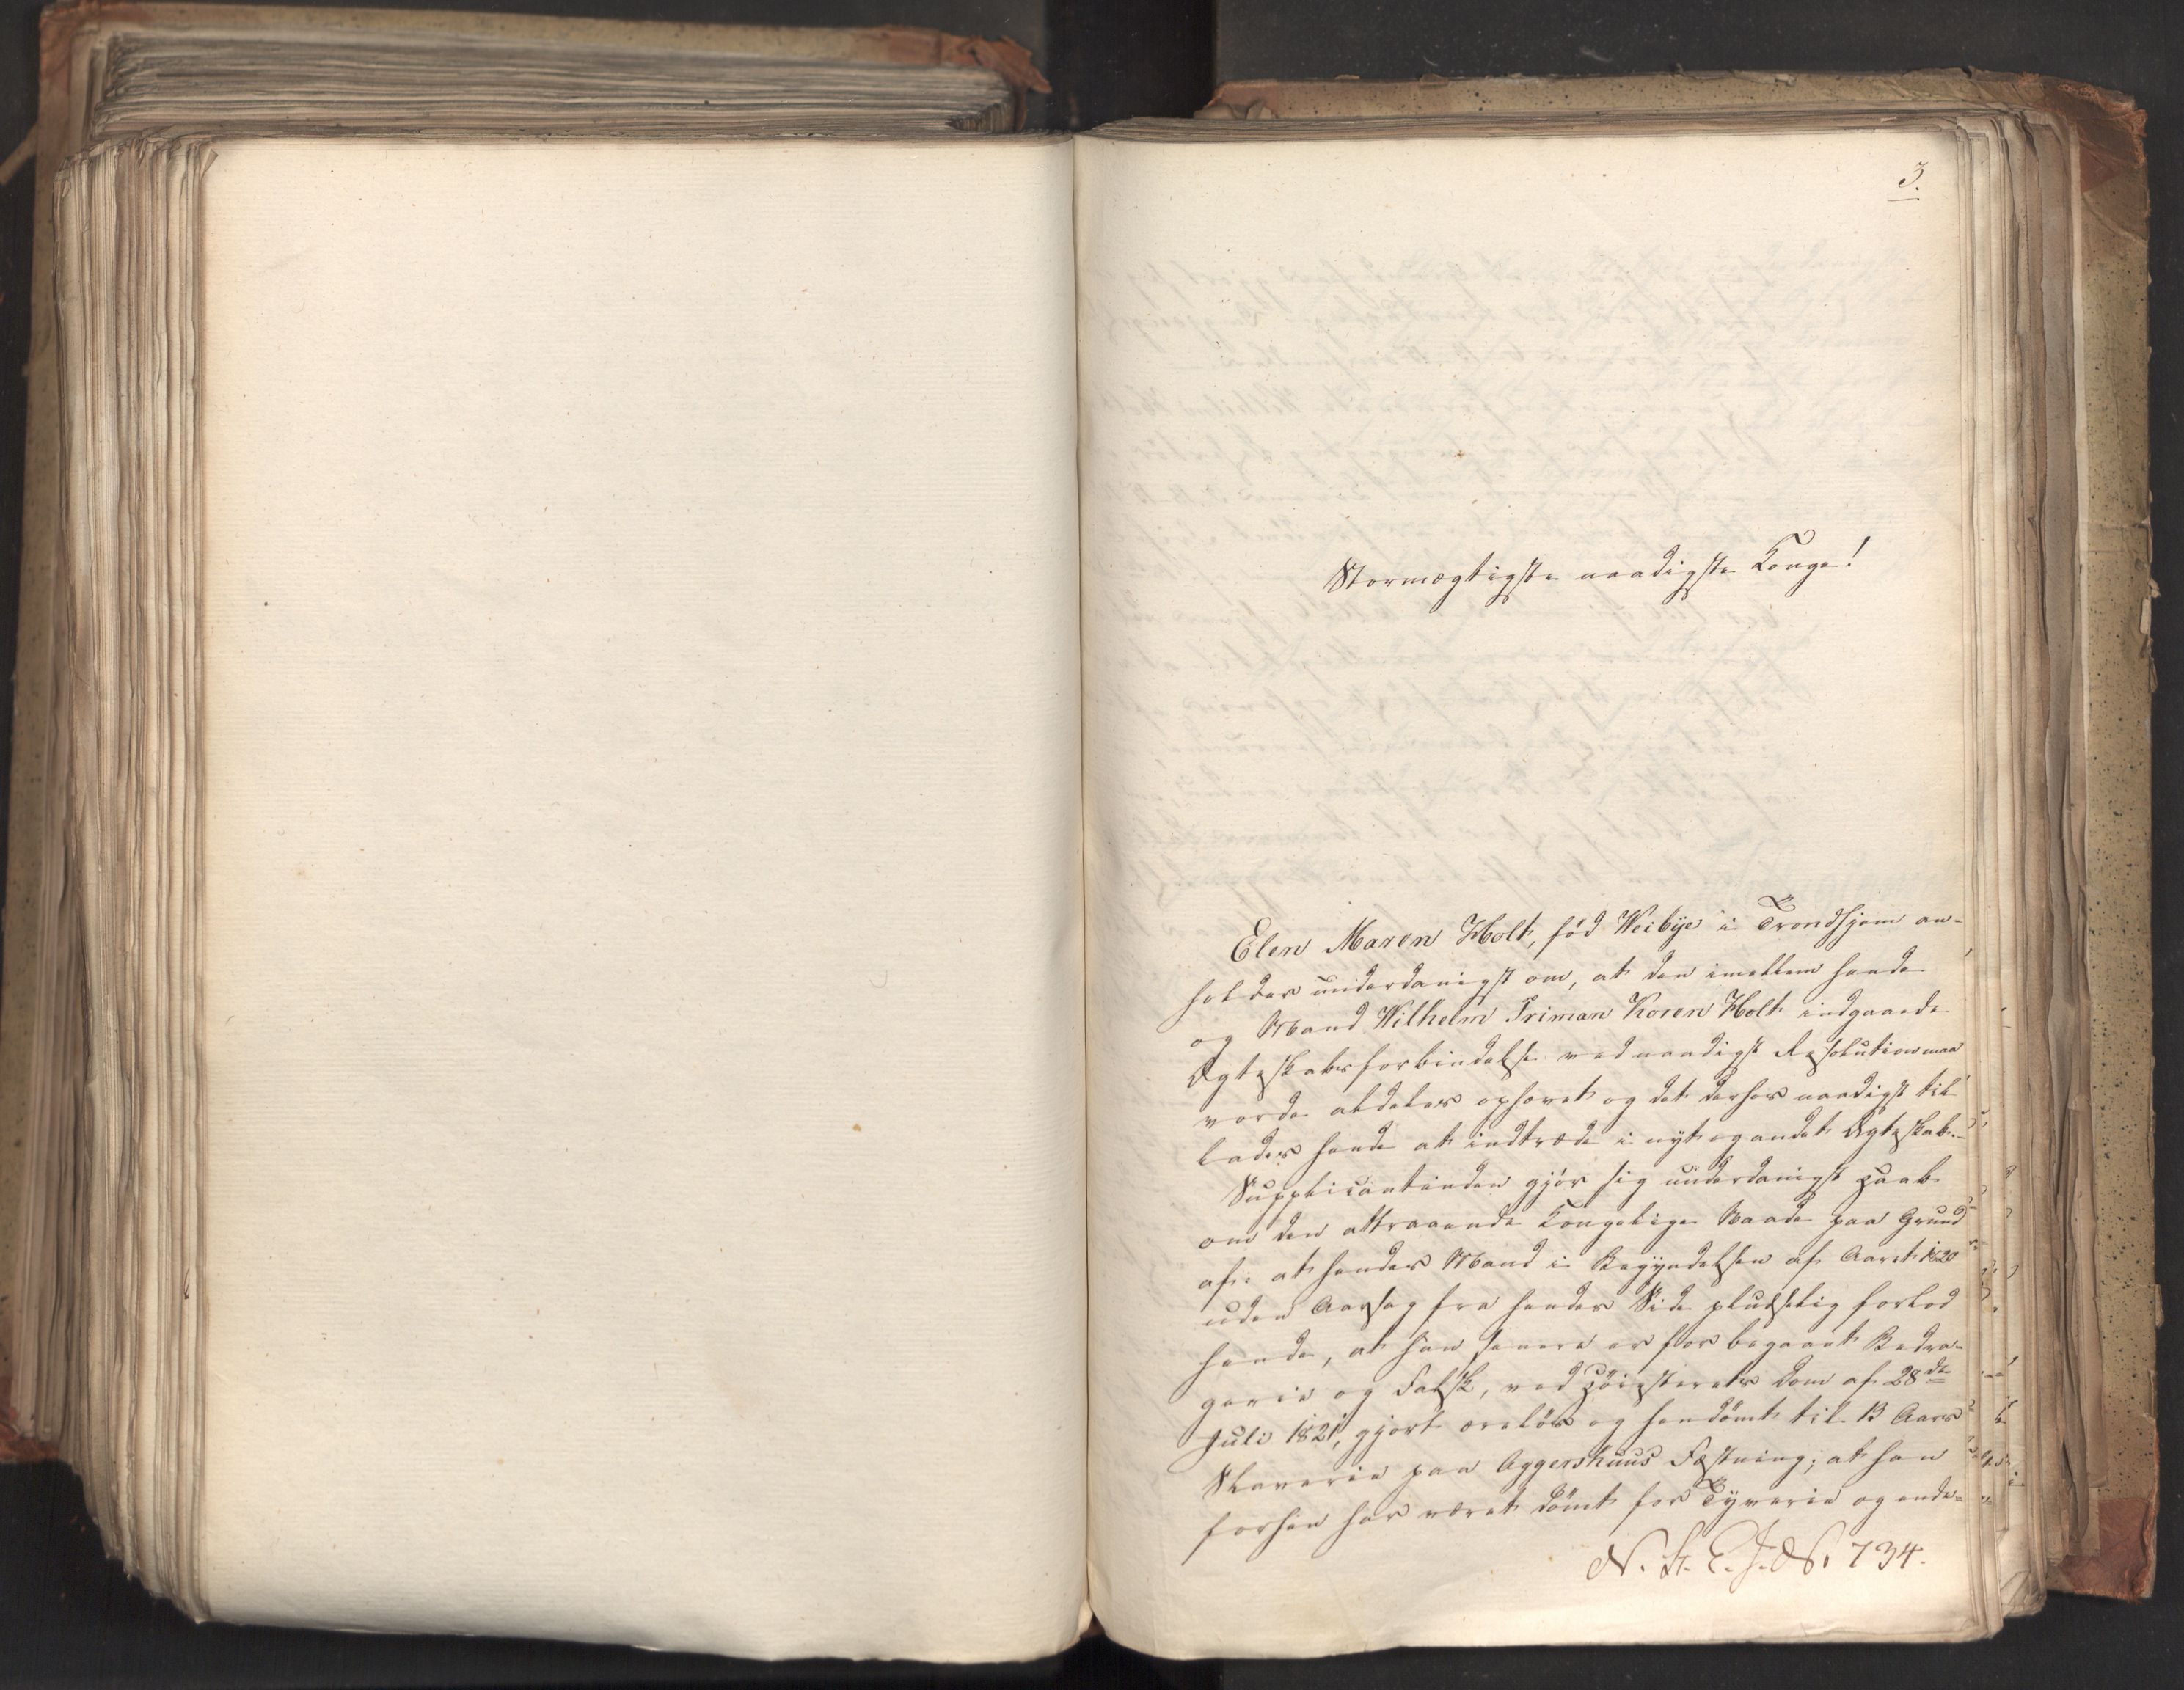 3.
Stormægtigste naadigste Konge!
Elen Maren Holt, fød Weibye i Trondhjem an-
holder underdanigst om, at den imellem hende
og Mand Wilhelm Friman Koren Holt indgaaede
Ægteskabsforbindelse ved naadigst Resolution maa
vorde aldeles ophævet og det derhos naadigst til
lades hende at indtræde i nyt og andet Ægteskab.-
Supplicantinden gjør sig underdanigst Haab
om den attraaende Kongelige Naade paa Grund
af: at hendes Mand i Begyndelsen af Aaret 1820
uden Aarsag fra hendes Side pludselig forlod
hende, at han senere er for begaaet Bedra-
gerie og Falsk, ved Høiesterets Dom af 28de
Juli 1821, gjort æreløs og hendømt til 13 Aars
Slaverie paa Aggershuus Fæstning; at han
forhen har været dømt for Tyverie og ende-
N. St. E. J. N. 734.